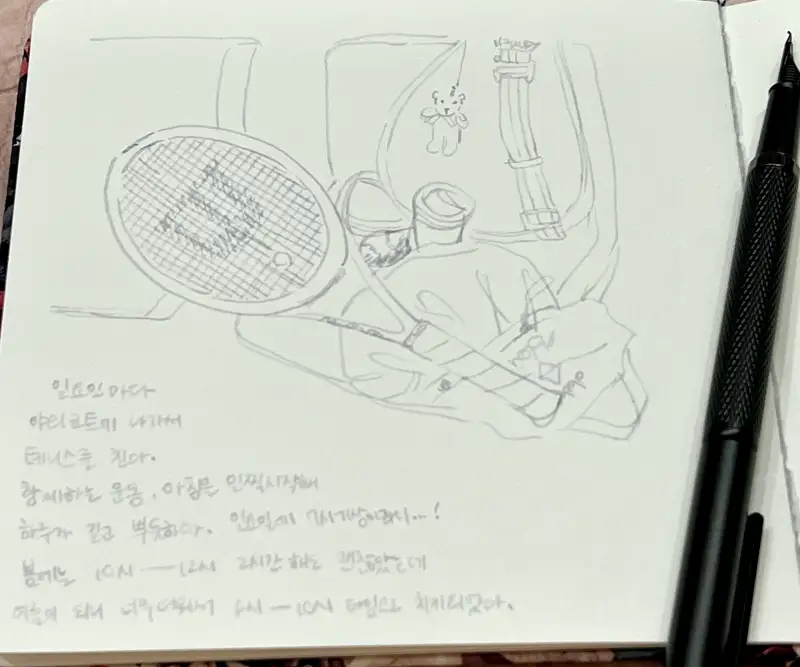 일요일마다
야외코트에 나가서
테니스를 친다.
함께하는 운동, 아침을 일찍 시작해
하루가 길고 뿌듯하다. 일요일에 7시 기상이라니..!
봄에는 10시 — 12시 2시간 해도 괜찮았는데
여름이 되니 너무 더워서 8시 — 10시 타임으로 치게 되었다.